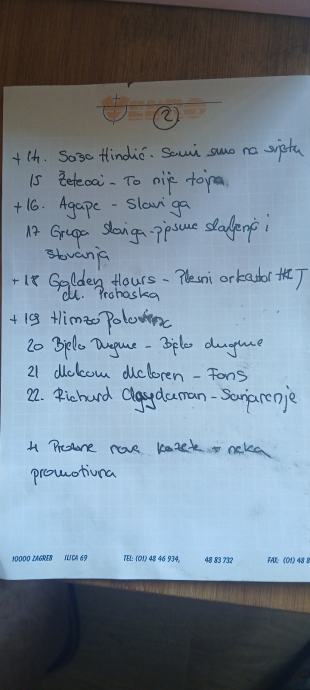 2
+ 14. Sašo Hindić - Sami smo na svijetu
15 Žeteoci - To nije tajna
+ 16. Agape - Slavi ga
17 Grupa slaviga - pjesme slavljenja i
štovanja
+ 18 Golden Hours - Plesni orkestar HRT
M. Prohaska
+ 19 Himzo Polovina
20 Bijelo Dugme - Bijelo dugme
21 Malcom Mcloren - Fans
22. Richard Clayderman - Sanjarenje
4 Prazne nove kazete - neka
promotivna
10000 ZAGREB ILICA 69 TEL: (01) 48 46 934, 48 83 732 FAX: (01) 48 8